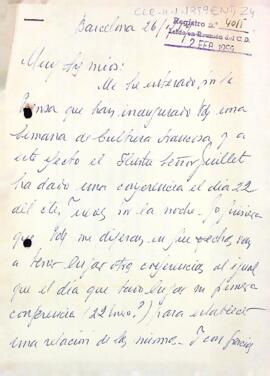 CLE-11-1-1959
Registro nº 4011
2 FEB. 1959
Barcelona 26/
Muy Srs míos:
Me he enterado por la
prensa que han inaugurado Vds una
Semana de Cultura Francesa, y a
este efecto el Señor Guillet
ha dado una conferencia el día 22
del cte. por la noche. Yo quisiera
que Vds me dijeran en que fechas van
a tener lugar otras conferencias al igual
que el día que tuvo lugar su primera
conferencia (22 Enero?) para establecer
una relación de las mismas.